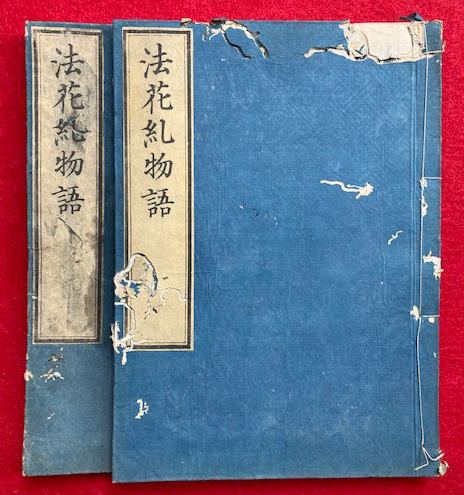 法花糺物語
法花糺物語